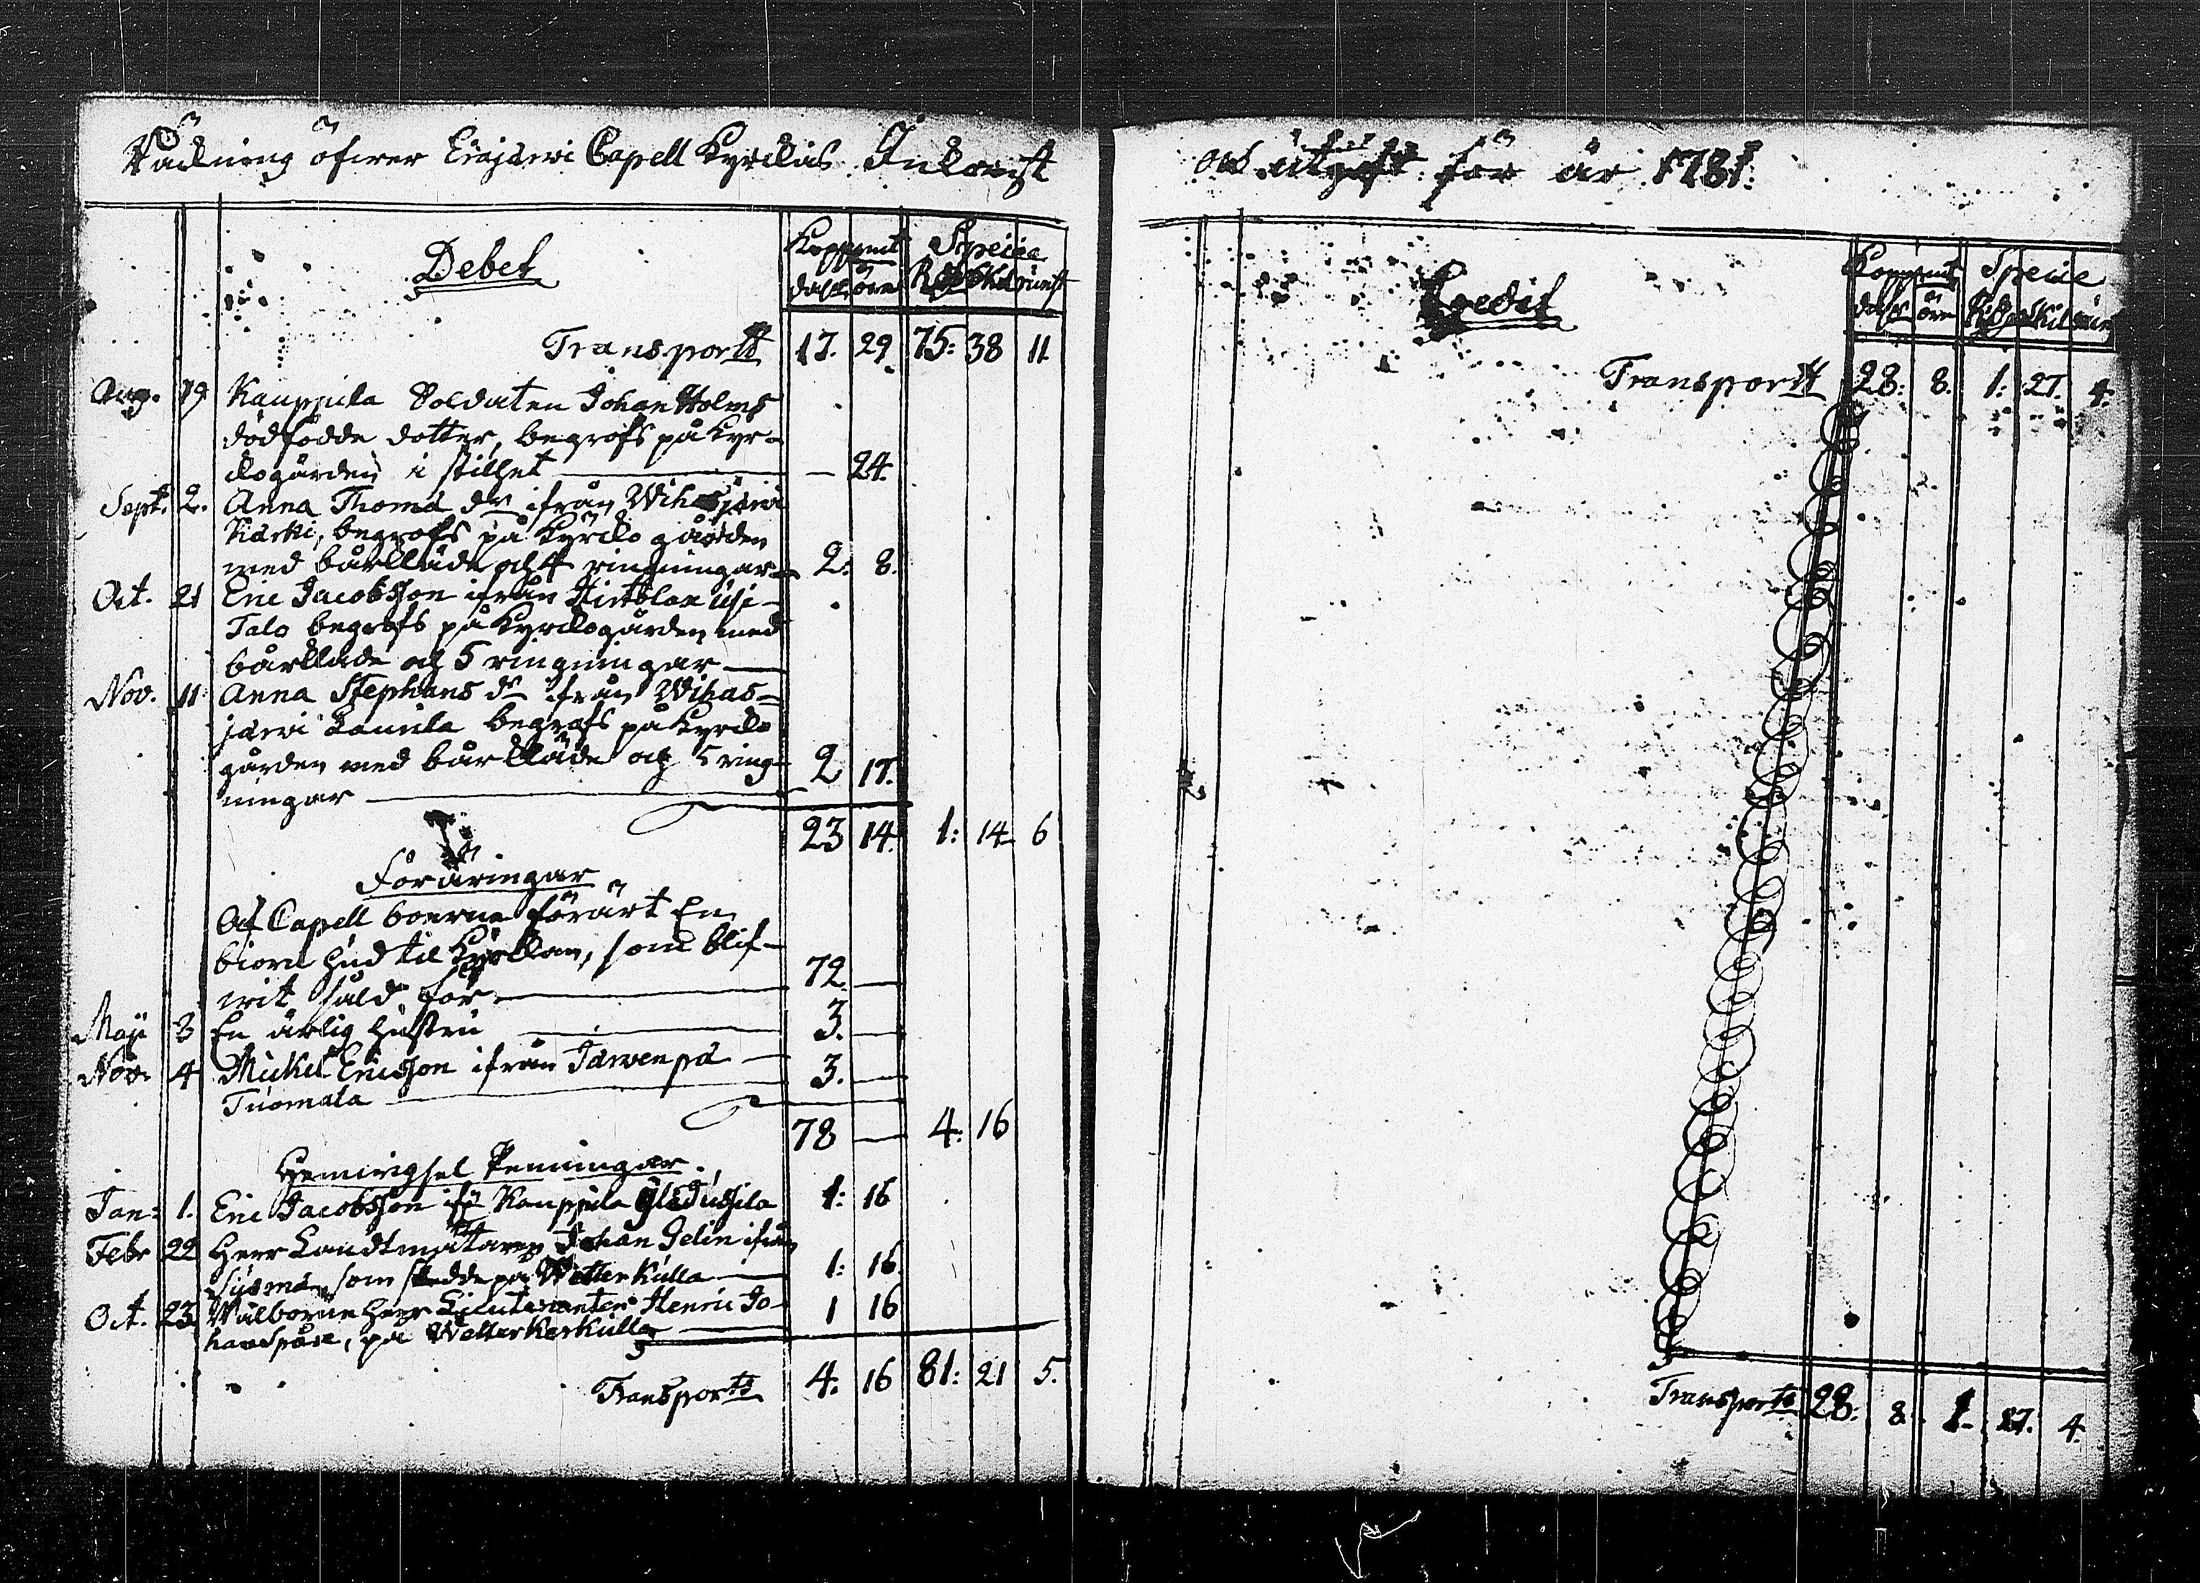 Räckning öfwer Eräjärwi Capell Kyrckas Inkomst
och utgift för år 1781.
Debet
Koppmt Specie
dahl. öre Rdr Skil. runst
Transportt 17. 29. 75: 38 11
Aug. 19 Kauppila Soldaten Johan Holms
dödfödde dotter, begrofs på kyr-
kogården i stillhet — 24.
Sept. 2. Anna Thoma dr ifrån Wihasjärwi
Kärki, begrofs på Kyrko gården
med bårkläde och 4 ringningar 2: 8.
Oct. 21 Eric Jacobsson ifrån Hirtolax Usi-
Talo begrofs på Kyrkogården med
bårkläde och 5 ringningar
Nov. 11 Anna Stephans dr ifrån Wihas-
järwi Lauula begrofs på Kyrko
gården med bårkläde och 5 ring- 2 17.
ningar
23 14. 1: 14 6
Föräringar
Af Capell boerne förärt En
biörn hud til Kyrkan, som blif-
wit såld för 72 —
Maji 3 En ärlig hustru 3. —
Nov. 4 Mickel Ericsson ifrån Järwenpä 3. —
Tuomala
78 — 4: 16
Hemwigsel Penningar.
Jan: 1. Eric Jacobsson ifr Kauppila 1: 16
Febr 22 Herr Landtmätaren Johan Gelin ifrån
Sysmä, som skedde på Wetterkulla 1: 16
Oct. 23 Wälborne Herr Lieutenanten Henric Jo- 1 16
han Spåre, på Wetterkerkulla
Transporte 4. 16 81: 21 5.
Credit
Koppmt Specie
dahl. öre Rdr Skil. runst
Transportt 28: 8. 1: 27. 4.
Transporte 28: 8. 1 27. 4.